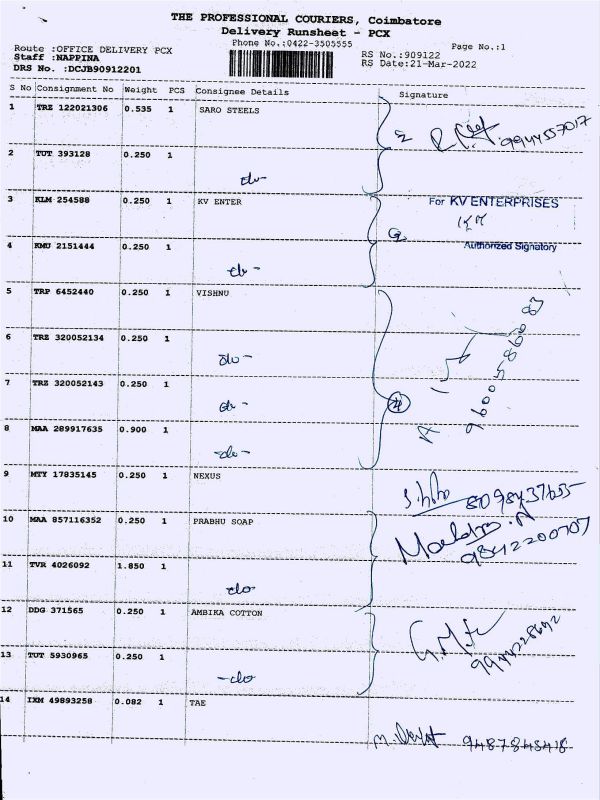 THE PROFESSIONAL COURIERS, Coimbatore
Delivery Runsheet - PCX
Phone No.:0422-3505555
Page No.:1
Route :OFFICE DELIVERY PCX
RS No.:909122
Staff :NAPPINA
RS Date:21-Mar-2022
DRS No. :DCJB90912201
S No Consignment No Weight PCS Consignee Details Signature
1 TRZ 122021306 0.535 1 SARO STEELS
2 9944557017
2 TUT 393128 0.250 1
do-
3 KLM 254588 0.250 1 KV ENTER For KV ENTERPRISES
Authorized Signatory
4 KMU 2151444 0.250 1
do-
5 TRP 6452440 0.250 1 VISHNU
6 TRZ 320052134 0.250 1
do-
7 TRZ 320052143 0.250 1
do-
4
8 MAA 289917635 0.900 1
-do-
9 MTY 17835145 0.250 1 NEXUS
8098437655
10 MAA 857116352 0.250 1 PRABHU SOAP
9842200707
11 TVR 4026092 1.850 1
do
12 DDG 371565 0.250 1 AMBIKA COTTON
13 TUT 5930965 0.250 1
-do
14 IXM 49893258 0.082 1 TAE
9487848418